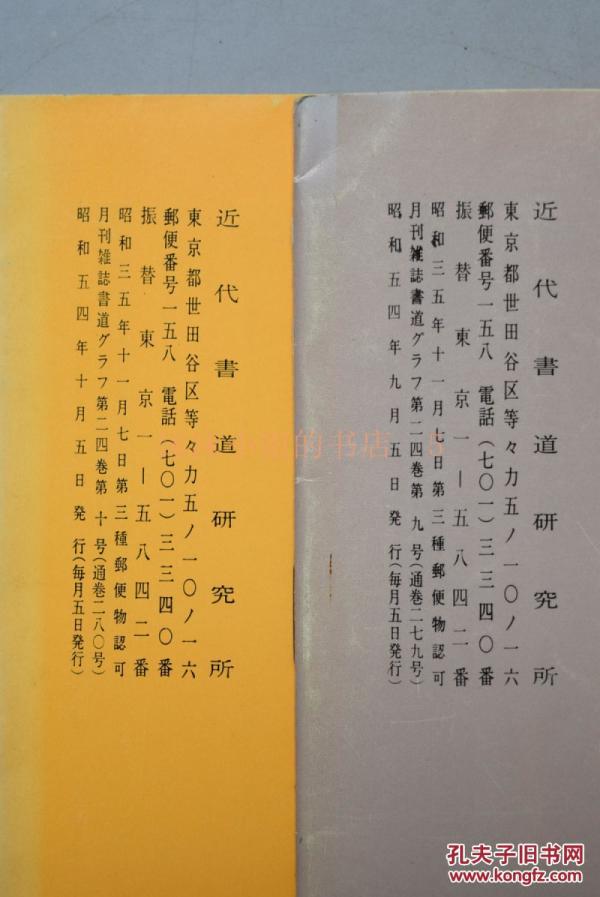 近代書道研究所
東京都世田谷区等々力五ノ一〇ノ一六
郵便番号一五八 電話(七〇一)三三四〇番
振替東京一―五八四二番
昭和三五年十一月七日第三種郵便物認可
月刊雑誌書道グラフ第二四巻第九号(通巻二七九号)
昭和五四年九月五日発行(毎月五日発行)
近代書道研究所
東京都世田谷区等々力五ノ一〇ノ一六
郵便番号一五八 電話(七〇一)三三四〇番
振替東京一―五八四二番
昭和三五年十一月七日第三種郵便物認可
月刊雑誌書道グラフ第二四巻第十号(通巻二八〇号)
昭和五四年十月五日発行(毎月五日発行)
孔夫子旧书网
www.kongfz.com